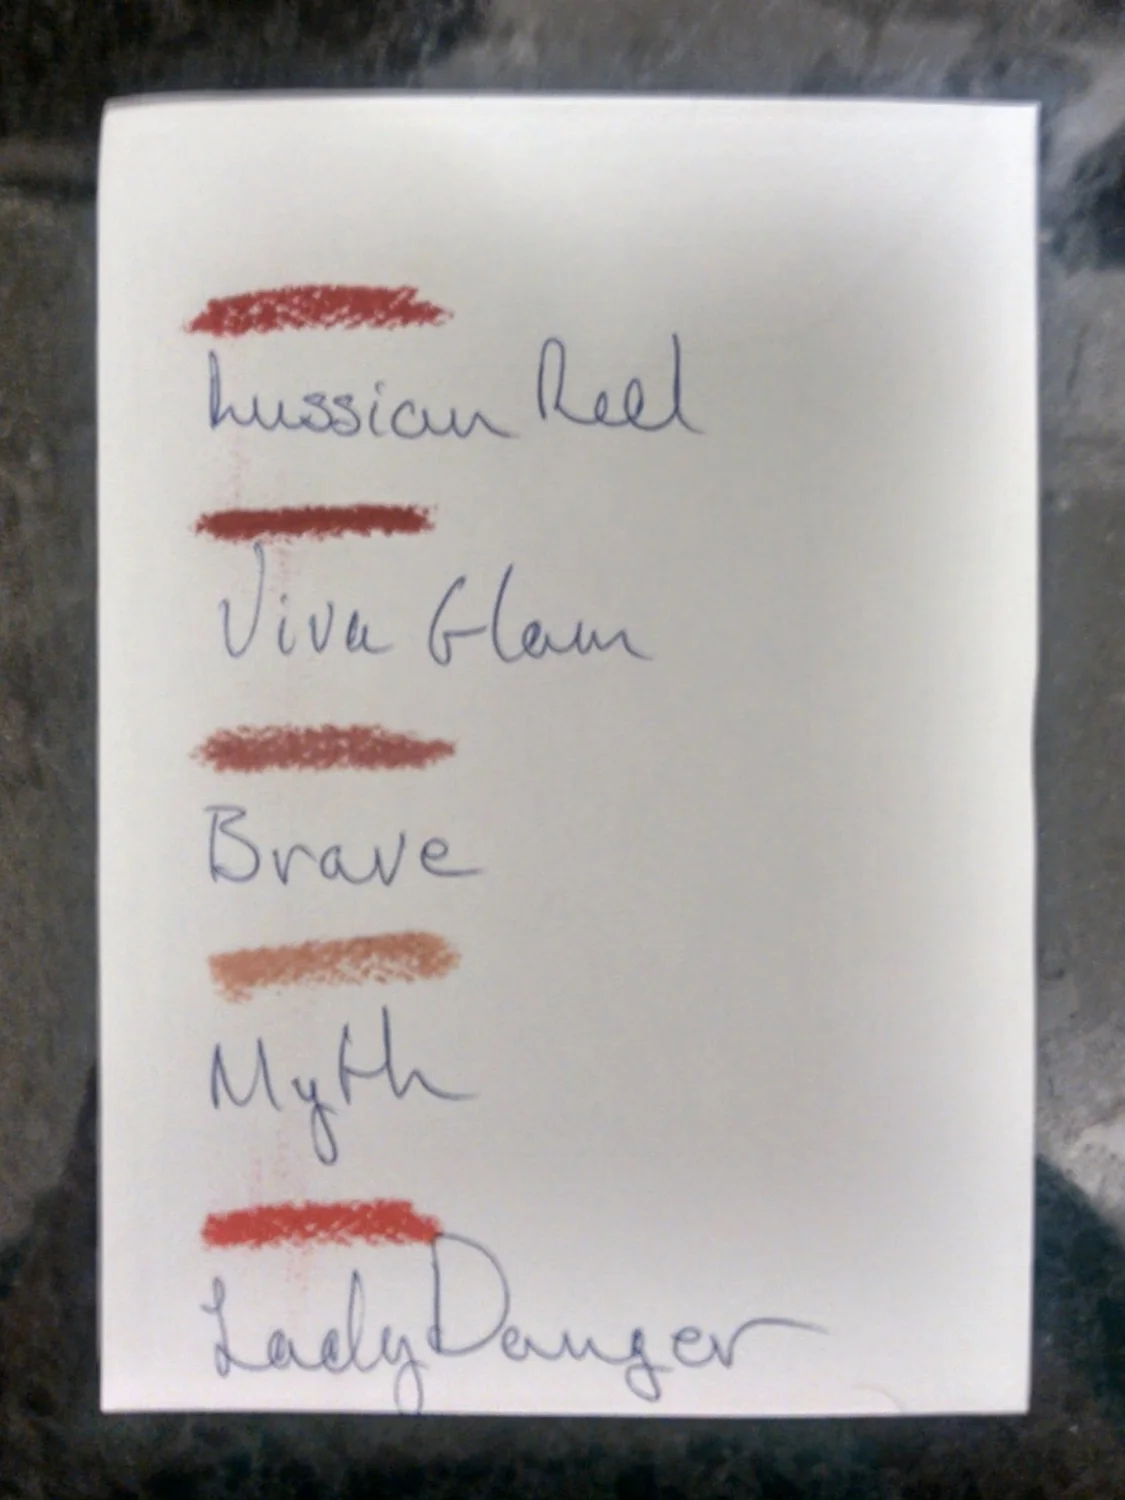 Russian Red
Viva Glam
Brave
Myth
Lady Danger